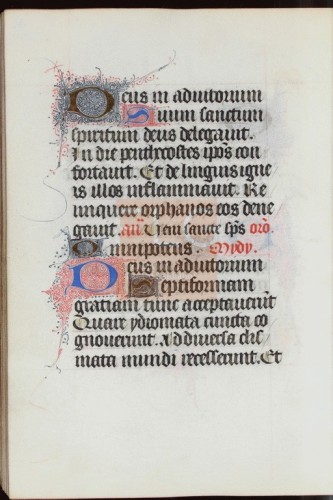 Deus in adiutorium
Suum sanctum
spiritum deus delegauit.
In die penthecostes ip̄os con
fortauit. Et de linguis igne
is illos inflammauit. Re
linquere orphanos eos dene
gauit. an̄. Ueni sancte sp̄s orō.
Omnipotens. Midy.
Deus in adiutorium
Septiformam
gratiam tunc acceptauerūt
Quare ydiomata cuncta co
gnouerunt. Ad diuersa cli
mata mundi recesserunt. Et